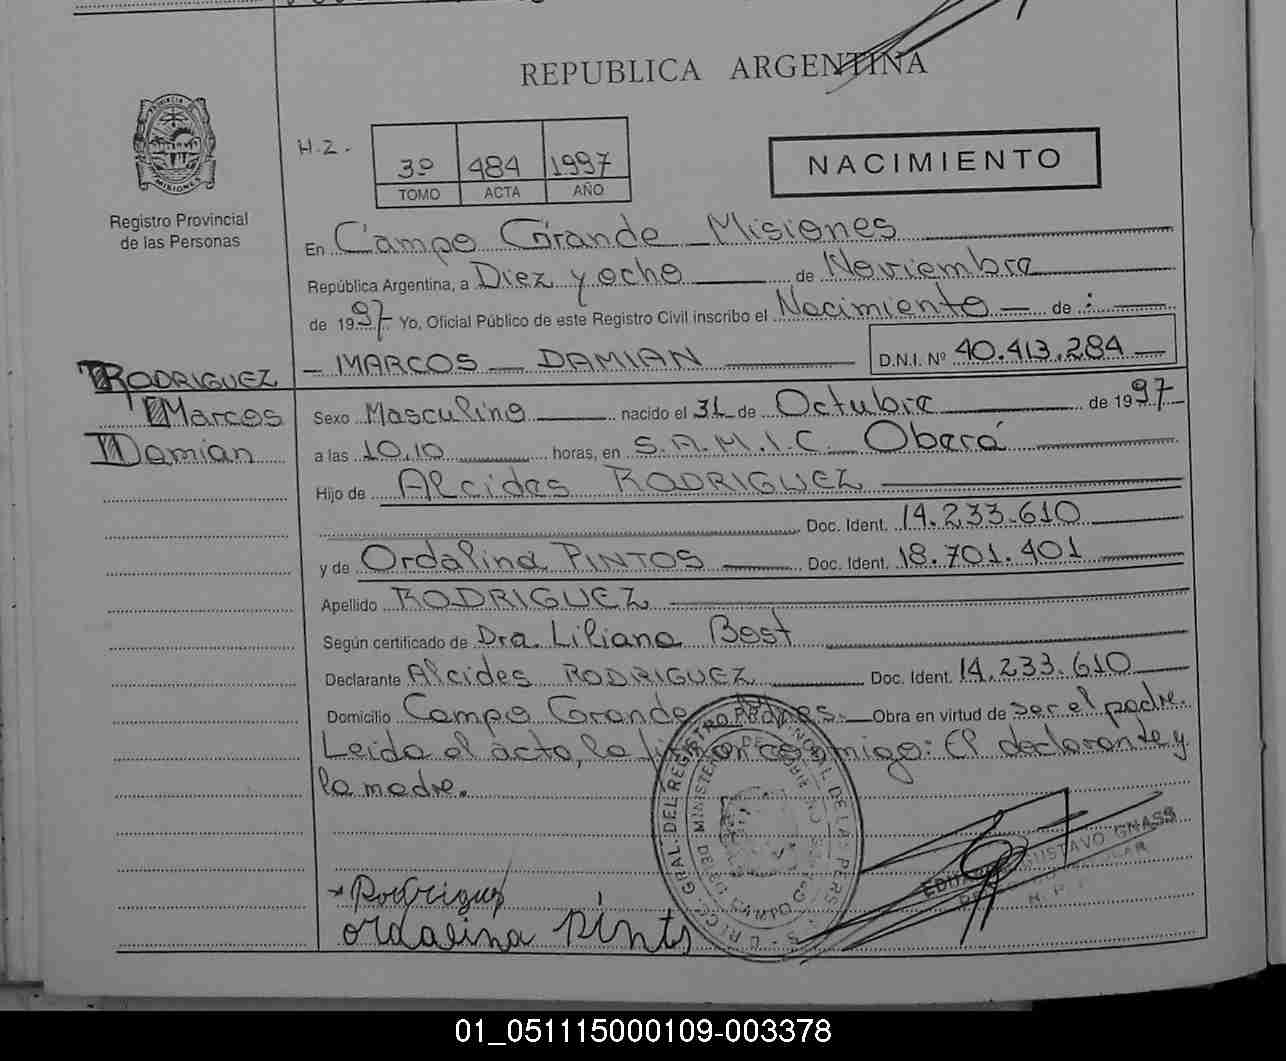 REPUBLICA ARGENTINA
PROVINCIA DE
MISIONES
Registro Provincial
de las Personas
H.Z.
3º 484 1997
TOMO ACTA AÑO
NACIMIENTO
En Campo Grande Misiones
República Argentina, a Diez y ocho de Noviembre
de 1997 Yo, Oficial Público de este Registro Civil inscribo el Nacimiento de :
MARCOS DAMIAN D.N.I. Nº 40.413.284
RODRIGUEZ
Marcos
Damian
Sexo Masculino nacido el 31 de Octubre de 1997
a las 10,10 horas, en S.A.M.I.C. Oberá
Hijo de Alcides RODRIGUEZ
Doc. Ident. 14.233.610
y de Ordalina PINTOS Doc. Ident. 18.701.401
Apellido RODRIGUEZ
Según certificado de Dra. Liliana Best
Declarante Alcides RODRIGUEZ Doc. Ident. 14.233.610
Domicilio Campo Grande Mnes. Obra en virtud de ser el padre.
Leida el acta, la firman conmigo: El declarante y
la madre.
Rodriguez
ordalina pintos
GRAL. DEL REGISTRO PROVINCIAL DE LAS PERS.
MINISTERIO DE GOBIERNO
CAMPO GRANDE
GUSTAVO GNASS
01_051115000109-003378